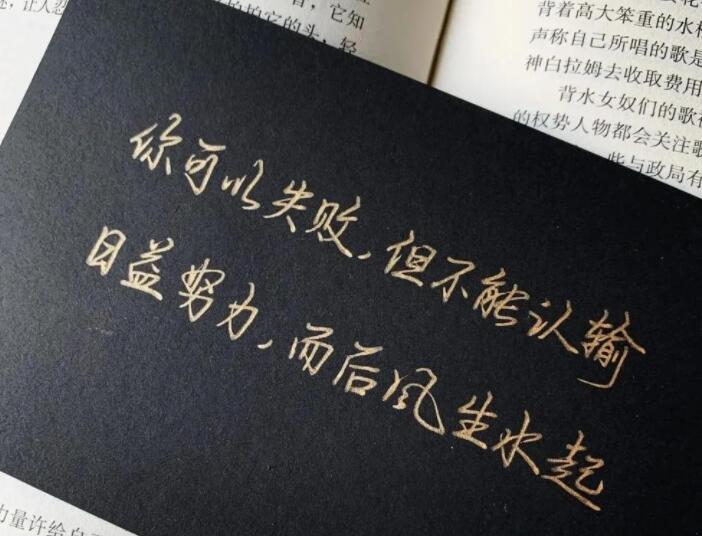 让人忍
它知
拍拍它的头；轻
背着高大笨重的水
声称自己所唱的歌是
神白拉姆去收取费用
背水女奴们的歌
的权势人物都会关注歌
些与政局有
你可以失败，但不能认输
日益努力，而后风生水起
力量许给自